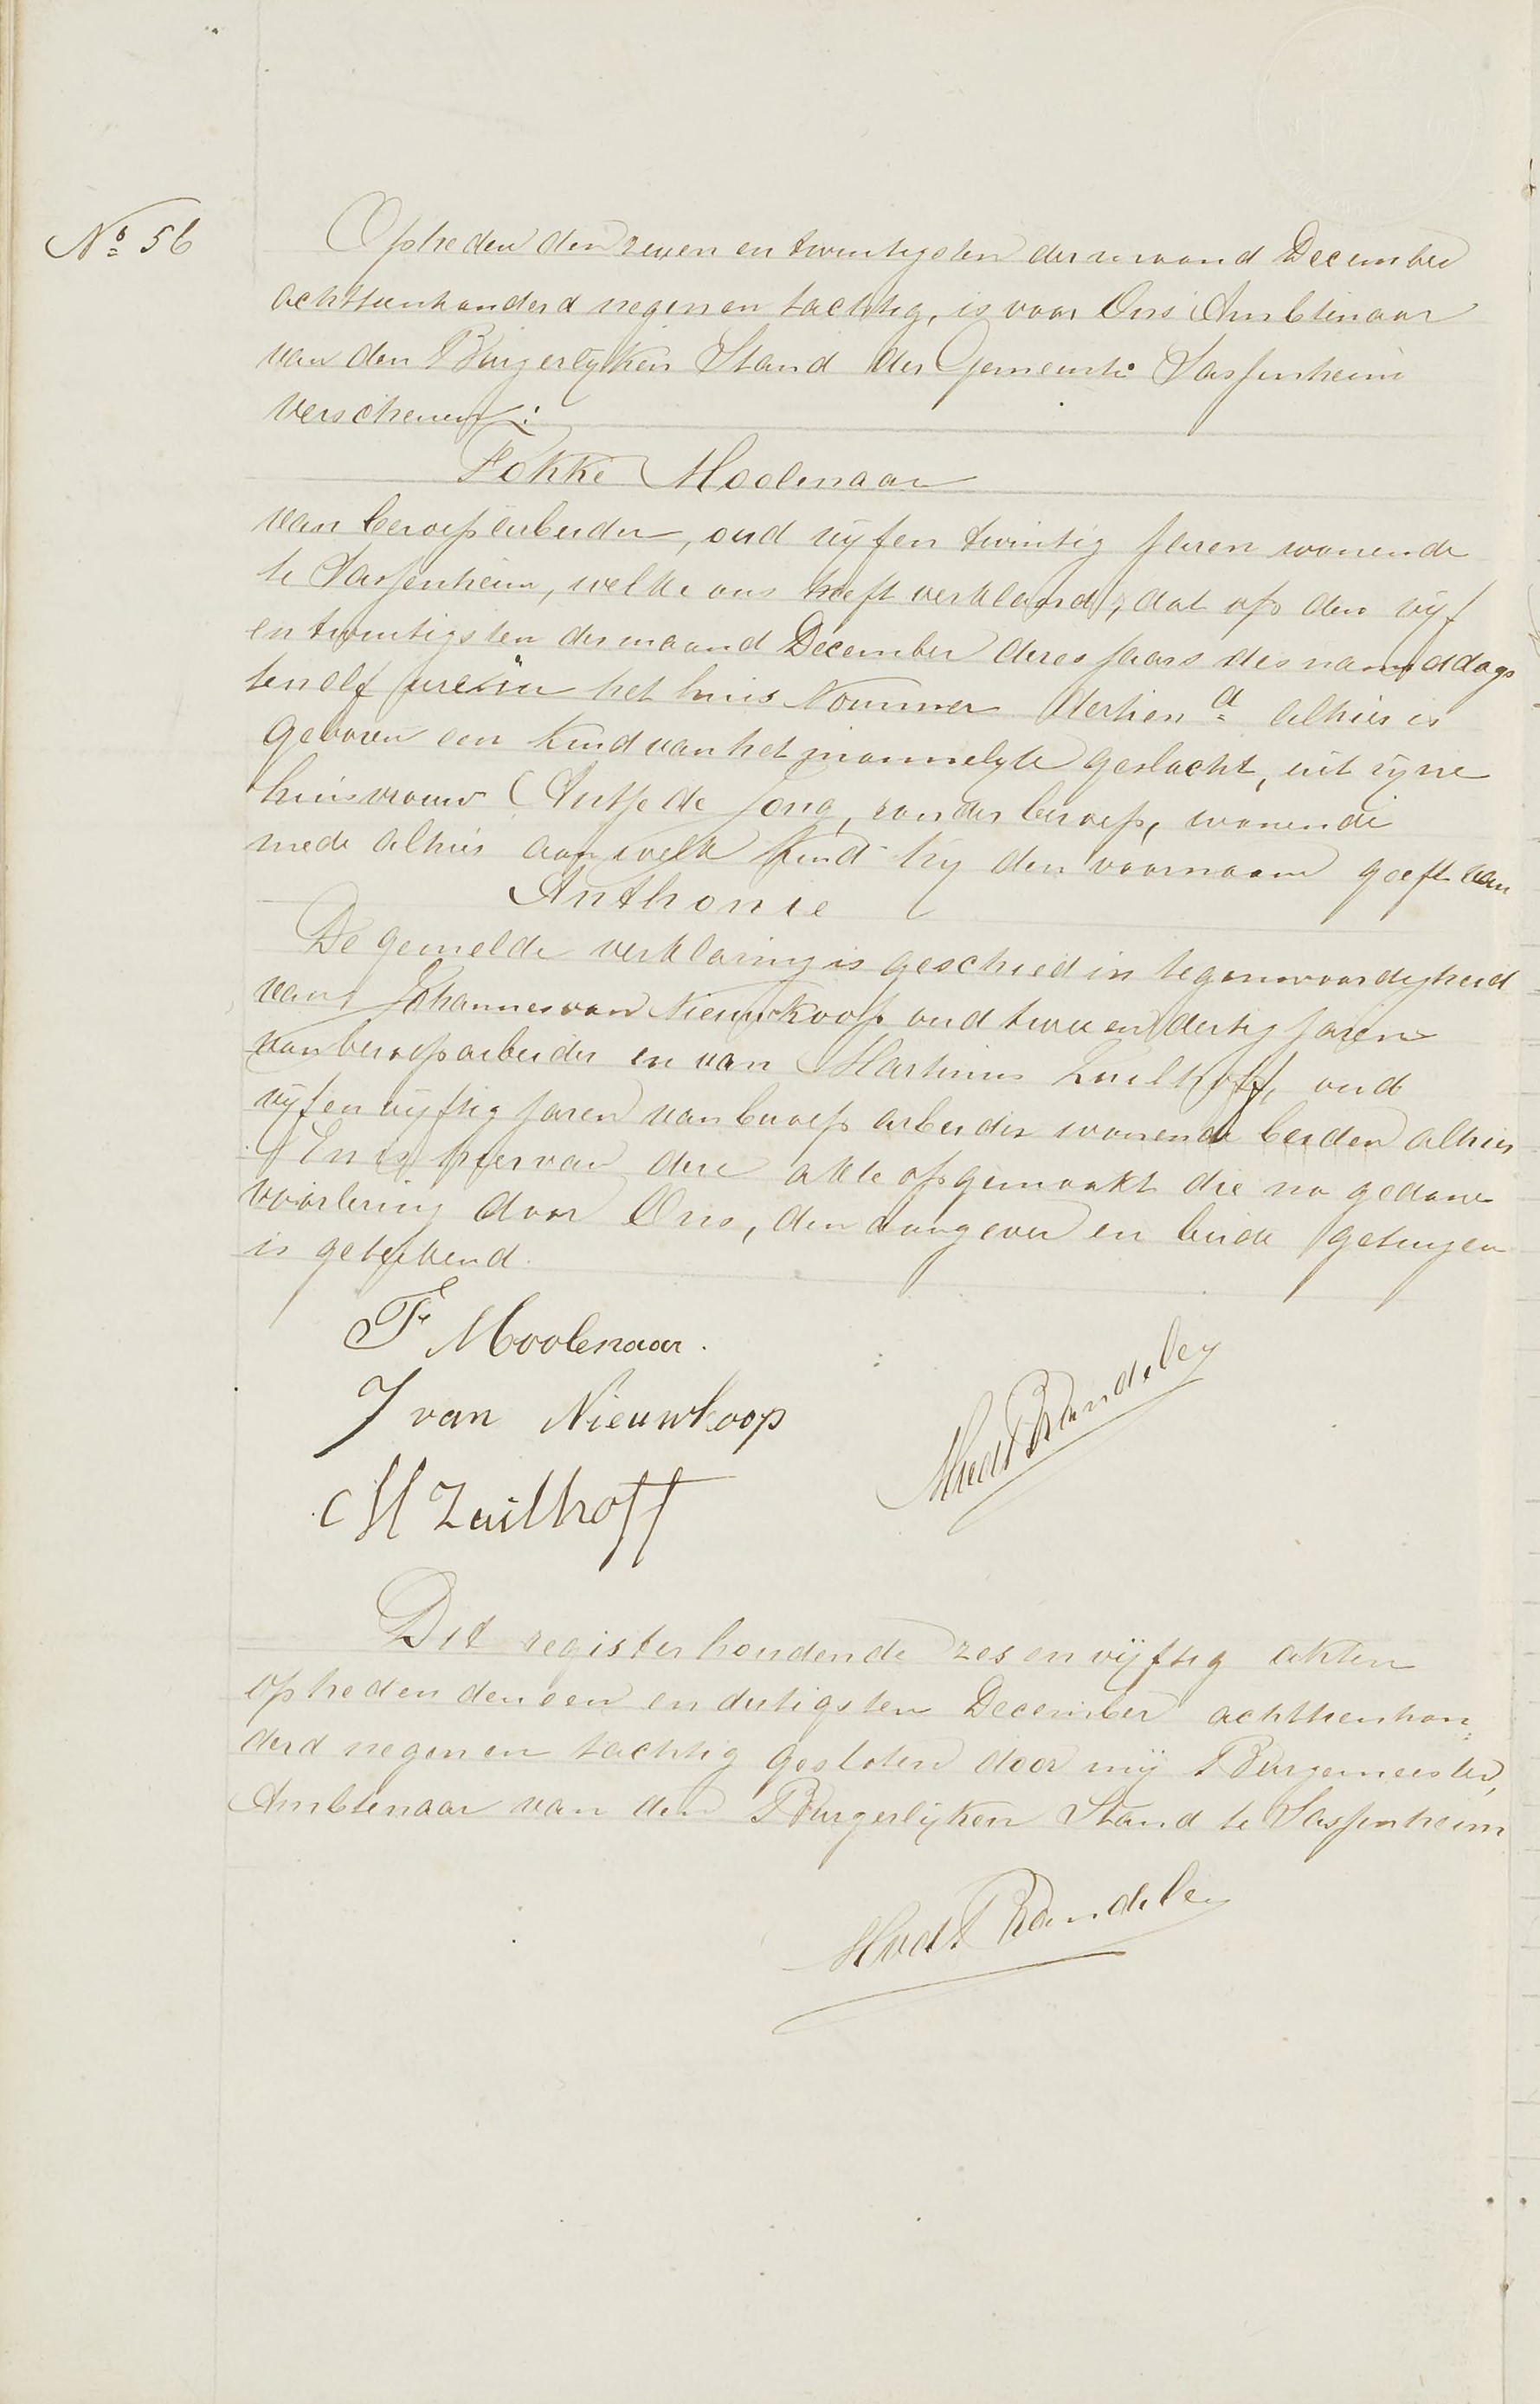 No 56
Opheden den zeven en twintigsten der maand December
achttienhonderd negen en tachtig, is voor Ons Ambtenaar
van den Burgerlyken Stand der Gemeente Sassenheim
verschenen:
Fokke Moolenaar
van beroep arbeider, oud vyf en twintig Jaren wonende
te Sassenheim, welke ons heeft verklaard, dat op den vyf
en twintigsten der maand December dezes jaars des namiddags
ten elf ure in het huis Nommer dertien a alhier is
geboren een kind van het mannelyke geslacht, uit zyne
huisvrouw Antje de Jong, zonder beroep, wonende
mede alhier aan welk kind hy den voornaam geeft van
Anthonie
De gemelde verklaring is geschied in tegenwoordigheid
van Johannes van Nieuwkoop oud twee en dertig jaren
van beroep arbeider en van Martinus Zuilhoff, oud
vyf en vyftig jaren van beroep arbeider wonende beiden alhier
En is hiervan deze akte opgemaakt die na gedane
voorlezing door Ons, den aangever en beide getuigen
is geteekend.
F Moolenaar.
J van Nieuwkoop
M Zuilhoff
Dit register houdende zes en vijftig akten
op heden den een en dertigsten December achttienhon=
derd negen en tachtig gesloten door mij Burgemeester,
Ambtenaar van den Burgerlijken Stand te Sassenheim